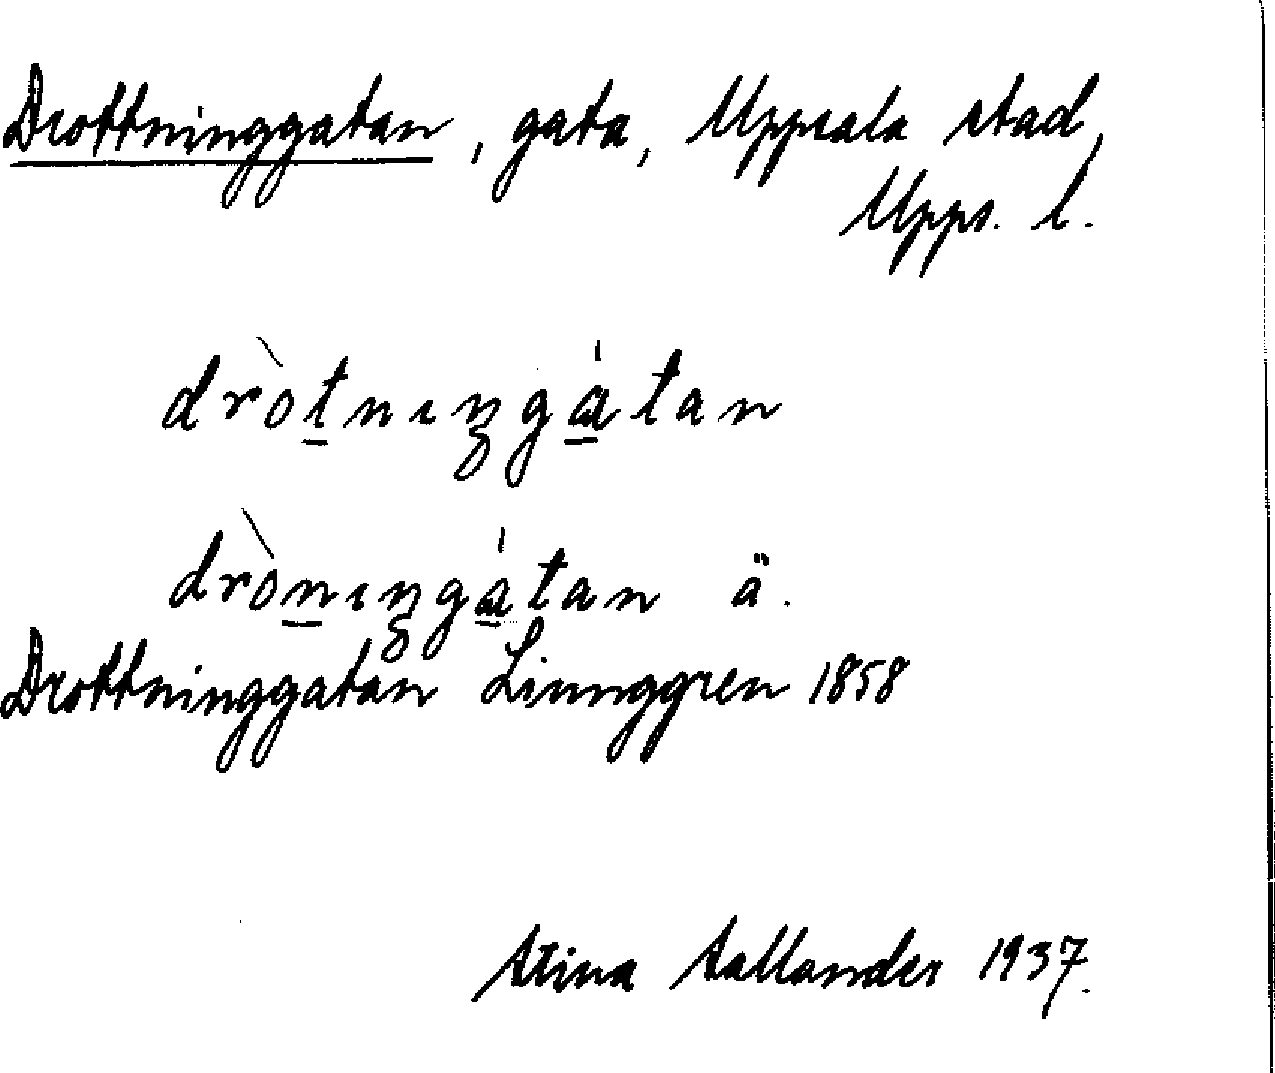 Drottninggatan, gata, Uppsala stad,
Upps. l.
dròt̲nıŋgɑ̲́tan
dròn̲ıŋgɑ̲́tan ä.
Drottninggatan Linnggren 1858
Stina Sallander 1937.